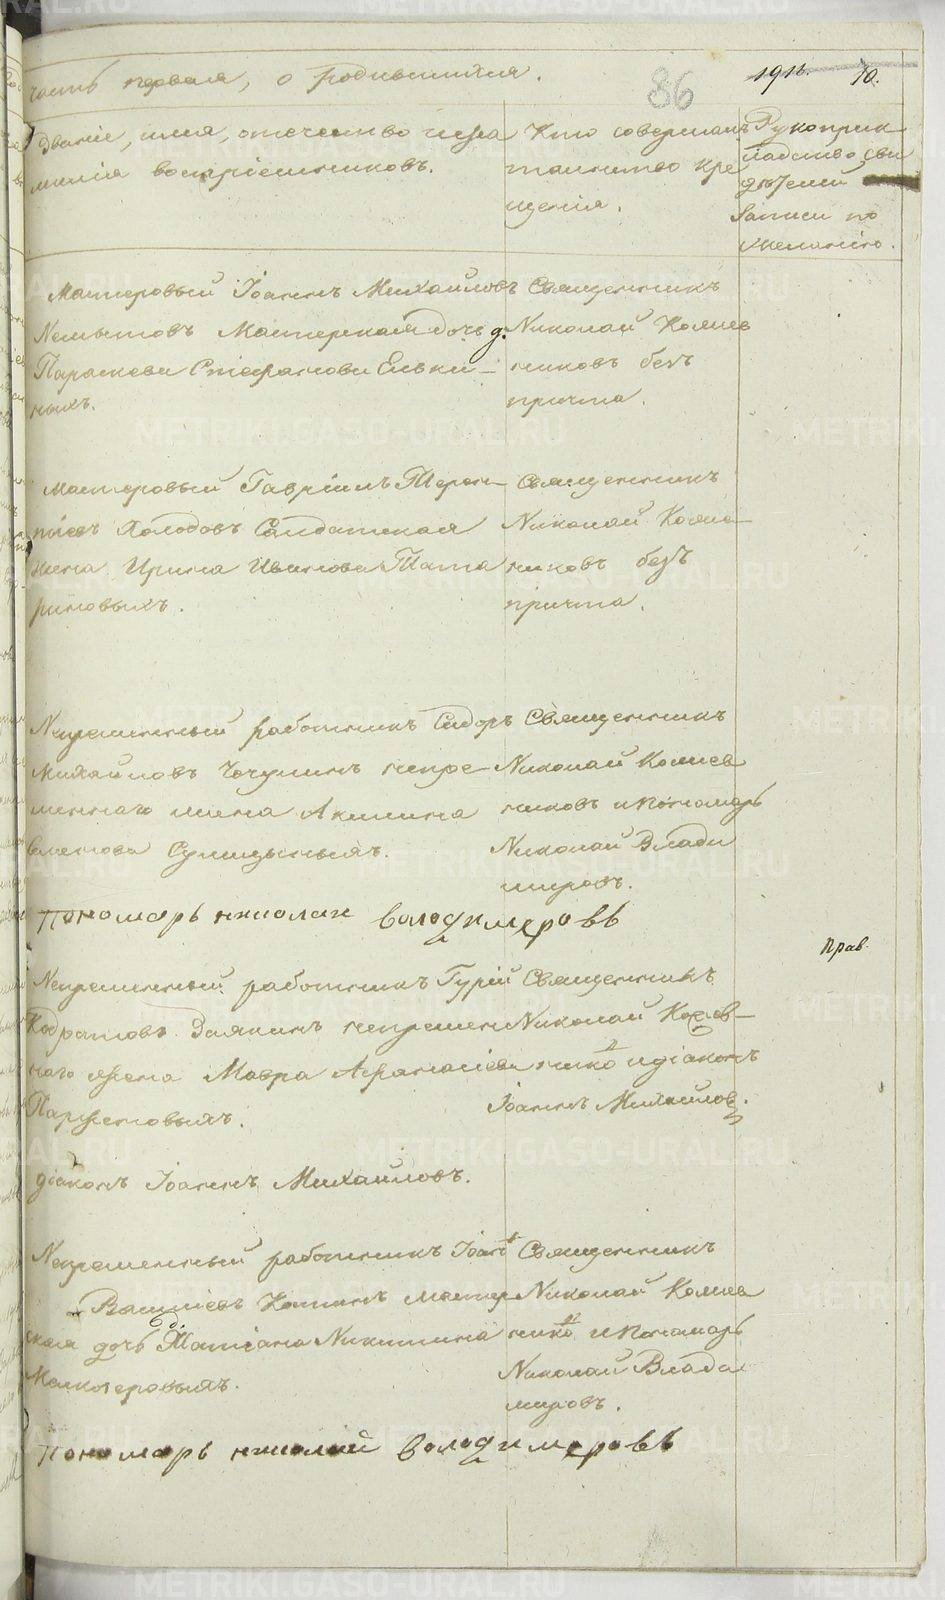 часть первая, о родившихся.
86
70.
Званіе, имя, отечество и фа
милія воспріемниковъ.
Кто совершалъ
таинство кре
щенія.
Рукоприк
ладство сви
дѣтелей
записи по
желанію.
Мастеровый Іоаннъ Михайловъ
Мастерская дочь д.
Параскева Стефанова
ныхъ.
Священникъ
Николай Кожев
никовъ безъ
причта.
мастеровый Гавріилъ Терен-
тіевъ Холодовъ Салдатская
жена Ирина Иванова Тата
риновыхъ.
Священникъ
Николай Кожев-
никовъ безъ
причта.
Непременный работникъ Сидоръ
Михайловъ непре-
меннаго жена Акилина
Семенова
Священникъ
Николай Кожев
никовъ и Пономарь
Николай Влади
мировъ.
Пономарь николаи володимеровъ
Прав.
Непременный работникъ Гурій
Кодратовъ непремен
наго жена Мавра Афанасіева
Парфеновыхъ.
Священникъ
Николай Кожев-
нико в и діаконъ
Іоаннъ Михайловъ.
діаконъ Іоаннъ Михайловъ.
Непременный работникъ Іоаннъ
Василіевъ мастер
ская дочь д. Татіана Никитина
Священникъ
Николай Кожев
нико в и Пономарь
Николай Влади
мировъ.
Пономарь николай володимеровъ
METRIKI.GASO-URAL.RU